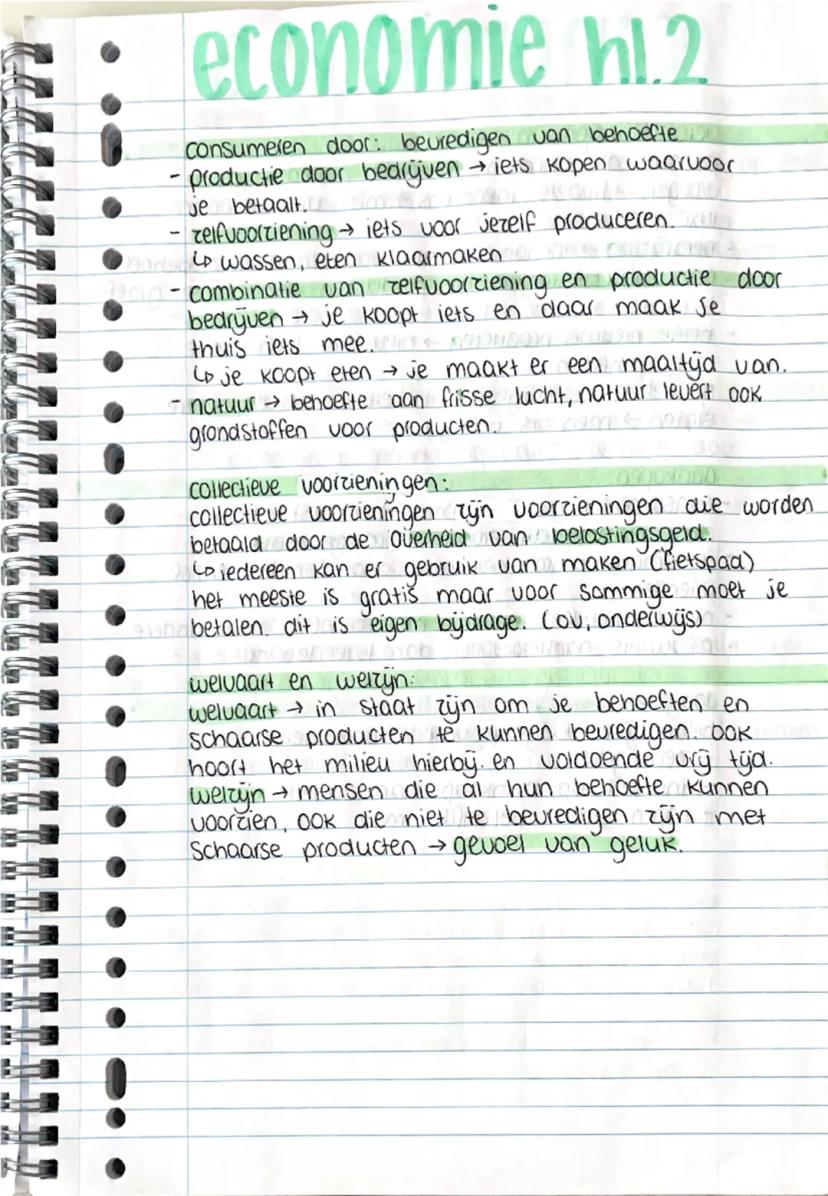 economie h1.2
consumeren door: bevredigen van behoefte
- productie door bedrijven → iets kopen waarvoor
je betaalt.
- zelfvoorziening → iets voor jezelf produceren.
↳ wassen, eten klaarmaken
- combinatie van zelfvoorziening en productie door
bedrijven → je koopt iets en daar maak je
thuis iets mee.
↳ je koopt eten → je maakt er een maaltijd van.
- natuur → behoefte aan frisse lucht, natuur levert ook
grondstoffen voor producten.
collectieve voorzieningen:
collectieve voorzieningen zijn voorzieningen die worden
betaald door de overheid van belastingsgeld.
↳ iedereen kan er gebruik van maken (fietspad)
het meeste is gratis maar voor sommige moet je
betalen. dit is eigen bijdrage. (ov, onderwijs)
welvaart en welzijn:
welvaart → in staat zijn om je behoeften en
schaarse producten te kunnen bevredigen. ook
hoort het milieu hierbij. en voldoende vrij tijd.
welzijn → mensen die al hun behoefte kunnen
voorzien, ook die niet te bevredigen zijn met
schaarse producten → gevoel van geluk.